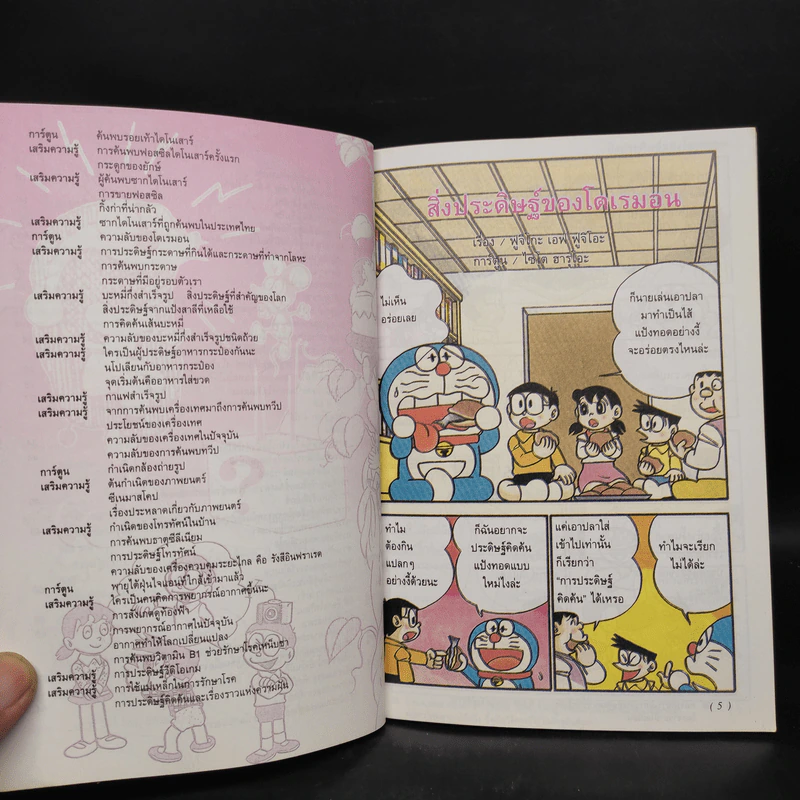 การ์ตูน ค้นพบรอยเท้าไดโนเสาร์
เสริมความรู้ การค้นพบฟอสซิลไดโนเสาร์ครั้งแรก
กระดูกของยักษ์
เสริมความรู้ ผู้ค้นพบซากไดโนเสาร์
การขายฟอสซิล
กิ้งก่าที่น่ากลัว
เสริมความรู้ ซากไดโนเสาร์ที่ถูกค้นพบในประเทศไทย
การ์ตูน ความลับของโดเรมอน
เสริมความรู้ การประดิษฐ์กระดาษที่กินได้และกระดาษที่ทำจากโลหะ
การค้นพบกระดาษ
กระดาษที่มีอยู่รอบตัวเรา
เสริมความรู้ บะหมี่กึ่งสำเร็จรูป สิ่งประดิษฐ์ที่สำคัญของโลก
สิ่งประดิษฐ์จากแป้งสาลีที่เหลือใช้
การคิดค้นเส้นบะหมี่
เสริมความรู้ ความลับของบะหมี่กึ่งสำเร็จรูปชนิดถ้วย
เสริมความรู้ ใครเป็นผู้ประดิษฐ์อาหารกระป๋องกันนะ
นโปเลียนกับอาหารกระป๋อง
จุดเริ่มต้นคืออาหารใส่ขวด
เสริมความรู้ กาแฟสำเร็จรูป
เสริมความรู้ จากการค้นพบเครื่องเทศมาถึงการค้นพบทวีป
ประโยชน์ของเครื่องเทศ
ความลับของเครื่องเทศในปัจจุบัน
ความลับของการค้นพบทวีป
การ์ตูน กำเนิดกล้องถ่ายรูป
เสริมความรู้ ต้นกำเนิดของภาพยนตร์
ซีเนมาสโคป
เรื่องประหลาดเกี่ยวกับภาพยนตร์
เสริมความรู้ กำเนิดของโทรทัศน์ในบ้าน
การค้นพบธาตุซีลีเนียม
การประดิษฐ์โทรทัศน์
ความลับของเครื่องควบคุมระยะไกล คือ รังสีอินฟราเรด
การ์ตูน พายุไต้ฝุ่นใจแอนท์ใกล้เข้ามาแล้ว
เสริมความรู้ ใครเป็นคนคิดการพยากรณ์อากาศขึ้นนะ
การสังเกตดูท้องฟ้า
การพยากรณ์อากาศในปัจจุบัน
อากาศทำให้โลกเปลี่ยนแปลง
การค้นพบวิตามิน B1 ช่วยรักษาโรคเหน็บชา
เสริมความรู้ การประดิษฐ์วีดีโอเกม
เสริมความรู้ การใช้แม่เหล็กในการรักษาโรค
การประดิษฐ์คิดค้นและเรื่องราวแห่งความฝัน
สิ่งประดิษฐ์ของโดเรมอน
เรื่อง / ฟูจิโกะ เอฟ ฟูจิโอะ
การ์ตูน / ไซโต ฮารุโอะ
ไม่เห็น
อร่อยเลย
ก็นายเล่นเอาปลา
มาทำเป็นไส้
แป้งทอดอย่างงี้
จะอร่อยตรงไหนล่ะ
ทำไม
ต้องกิน
แปลกๆ
อย่างงี้ด้วยนะ
ก็ฉันอยากจะ
ประดิษฐ์คิดค้น
แป้งทอดแบบ
ใหม่ไงล่ะ
แค่เอาปลาใส่
เข้าไปเท่านั้น
ก็เรียกว่า
"การประดิษฐ์
คิดค้น" ได้เหรอ
ทำไมจะเรียก
ไม่ได้ล่ะ
(5)